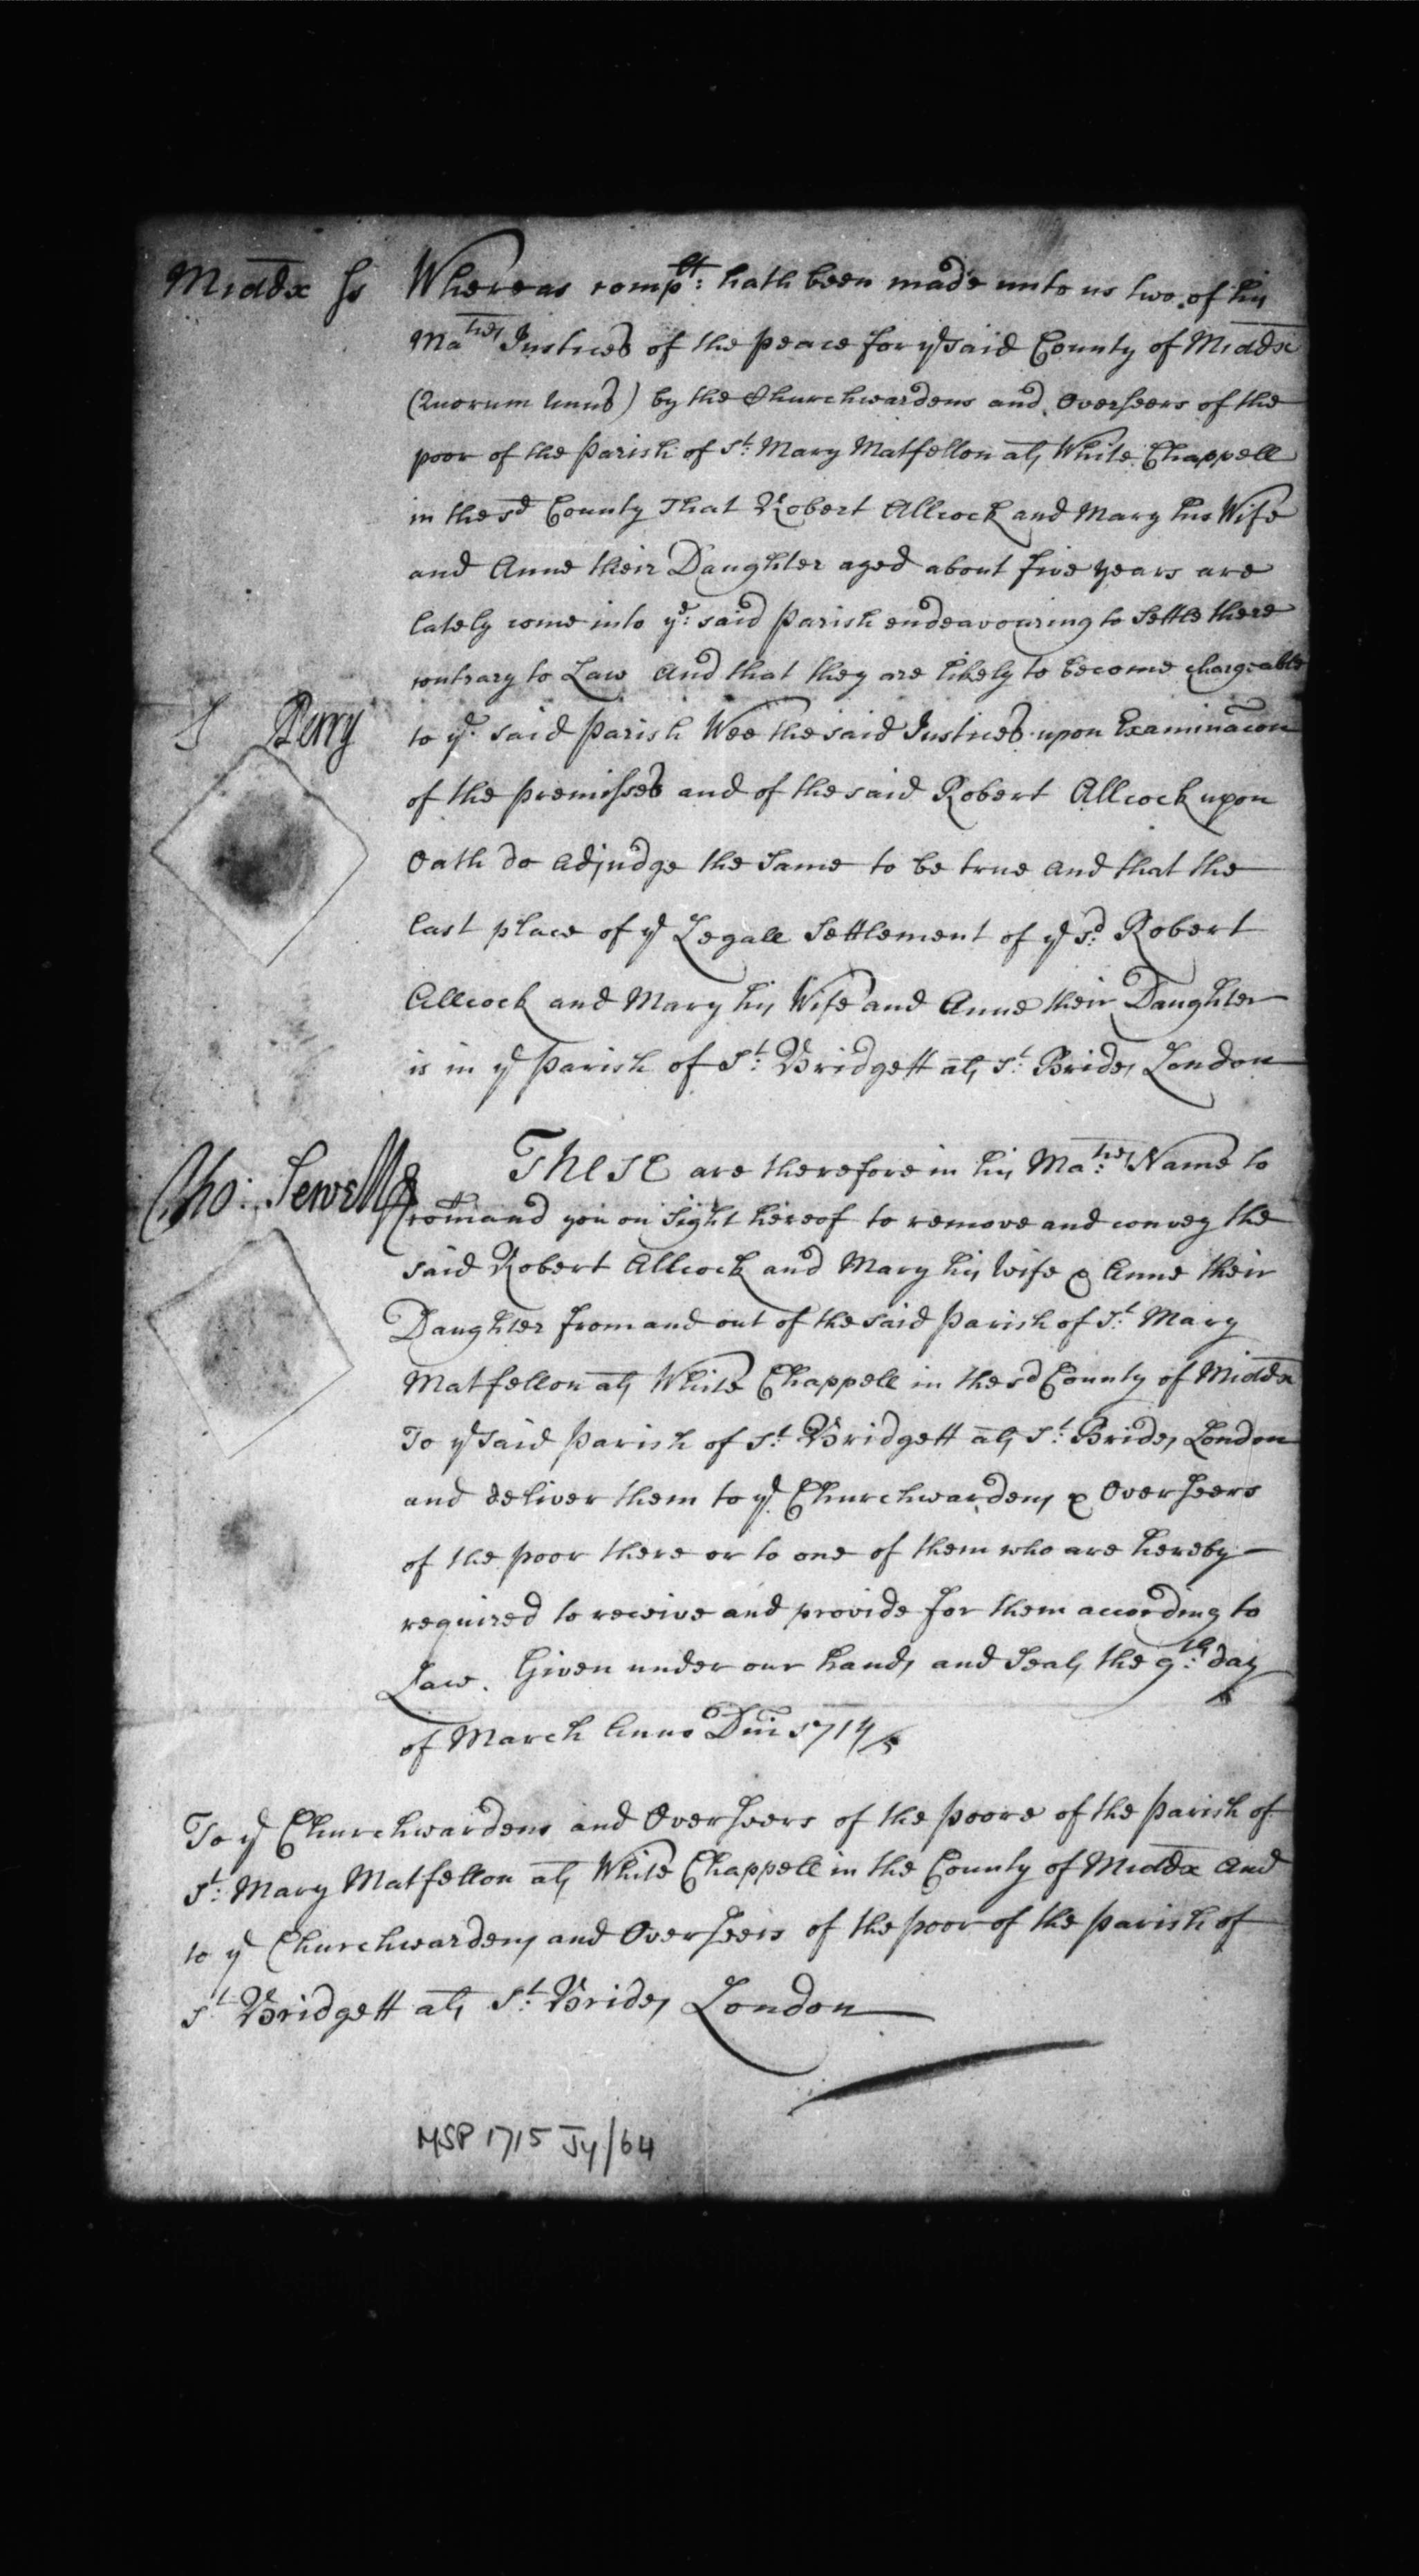 Middx ss Whereas compltt: hath been made unto us two of his
Maties Justices of the peace for ye said County of Middx
(Quorum unus) by the Churchwardens and Overseers of the
poor of the Parish of St: Mary Matfellon als White Chappell
in the sd County That Robert Allcock and Mary his Wife
and Anne their Daughter aged about five years are
lately come into ye: said Parish endeavouring to Settle there
contrary to Law And that they are likely to become chargeable
Perry
to ye said Parish Wee the said Justices upon Examinacon
of the premisses and of the said Robert Allcock upon
Oath do Adjudge the Same to be true And that the
last place of ye Legall Settlement of ye sd: Robert
Allcock and Mary his Wife and Anne their Daughter
is in ye Parish of St: Bridgett als St: Brides London
Tho: Sewell
These are therefore in his Ma:ties Name to
comand you on Sight hereof to remove and convey the
said Robert Allcock and Mary his wife & Anne their
Daughter from and out of the said Parish of St: Mary
Matfellon als White Chappell in the sd County of Middx
To ye said Parish of St: Bridgett als St: Brides London
and deliver them to ye Churchwardens & Overseers
of the poor there or to one of them who are hereby
required to receive and provide for them according to
Law. Given under our hands and Seals the 9:th day
of March Anno Dni 1714/5
To ye Churchwardens and Overseers of the Poore of the Parish of
St: Mary Matfellon als White Chappell in the County of Middx And
to ye Churchwardens and Overseers of the poor of the parish of
St Bridgett als St: Brides London
MSP 1715 Jy/64